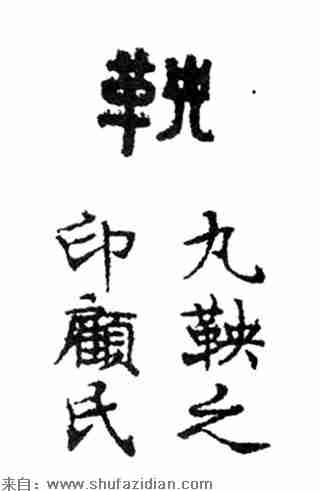 鞅
丸鞅之
印顧氏
来自：www.shufazidian.com